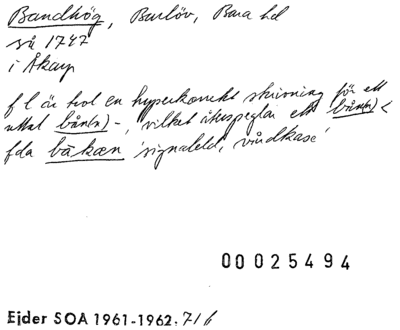 Bandhög, Burlöv, Bara hd
så 1747
i Åkarp
f l är trol en hyperkorrekt skrivning för ett
uttal bån(n)-, vilket återspeglar ett bån(n) <
fda bākæn 'signaleld, vårdkase'
00025494
Ejder SOA 1961-1962. 716